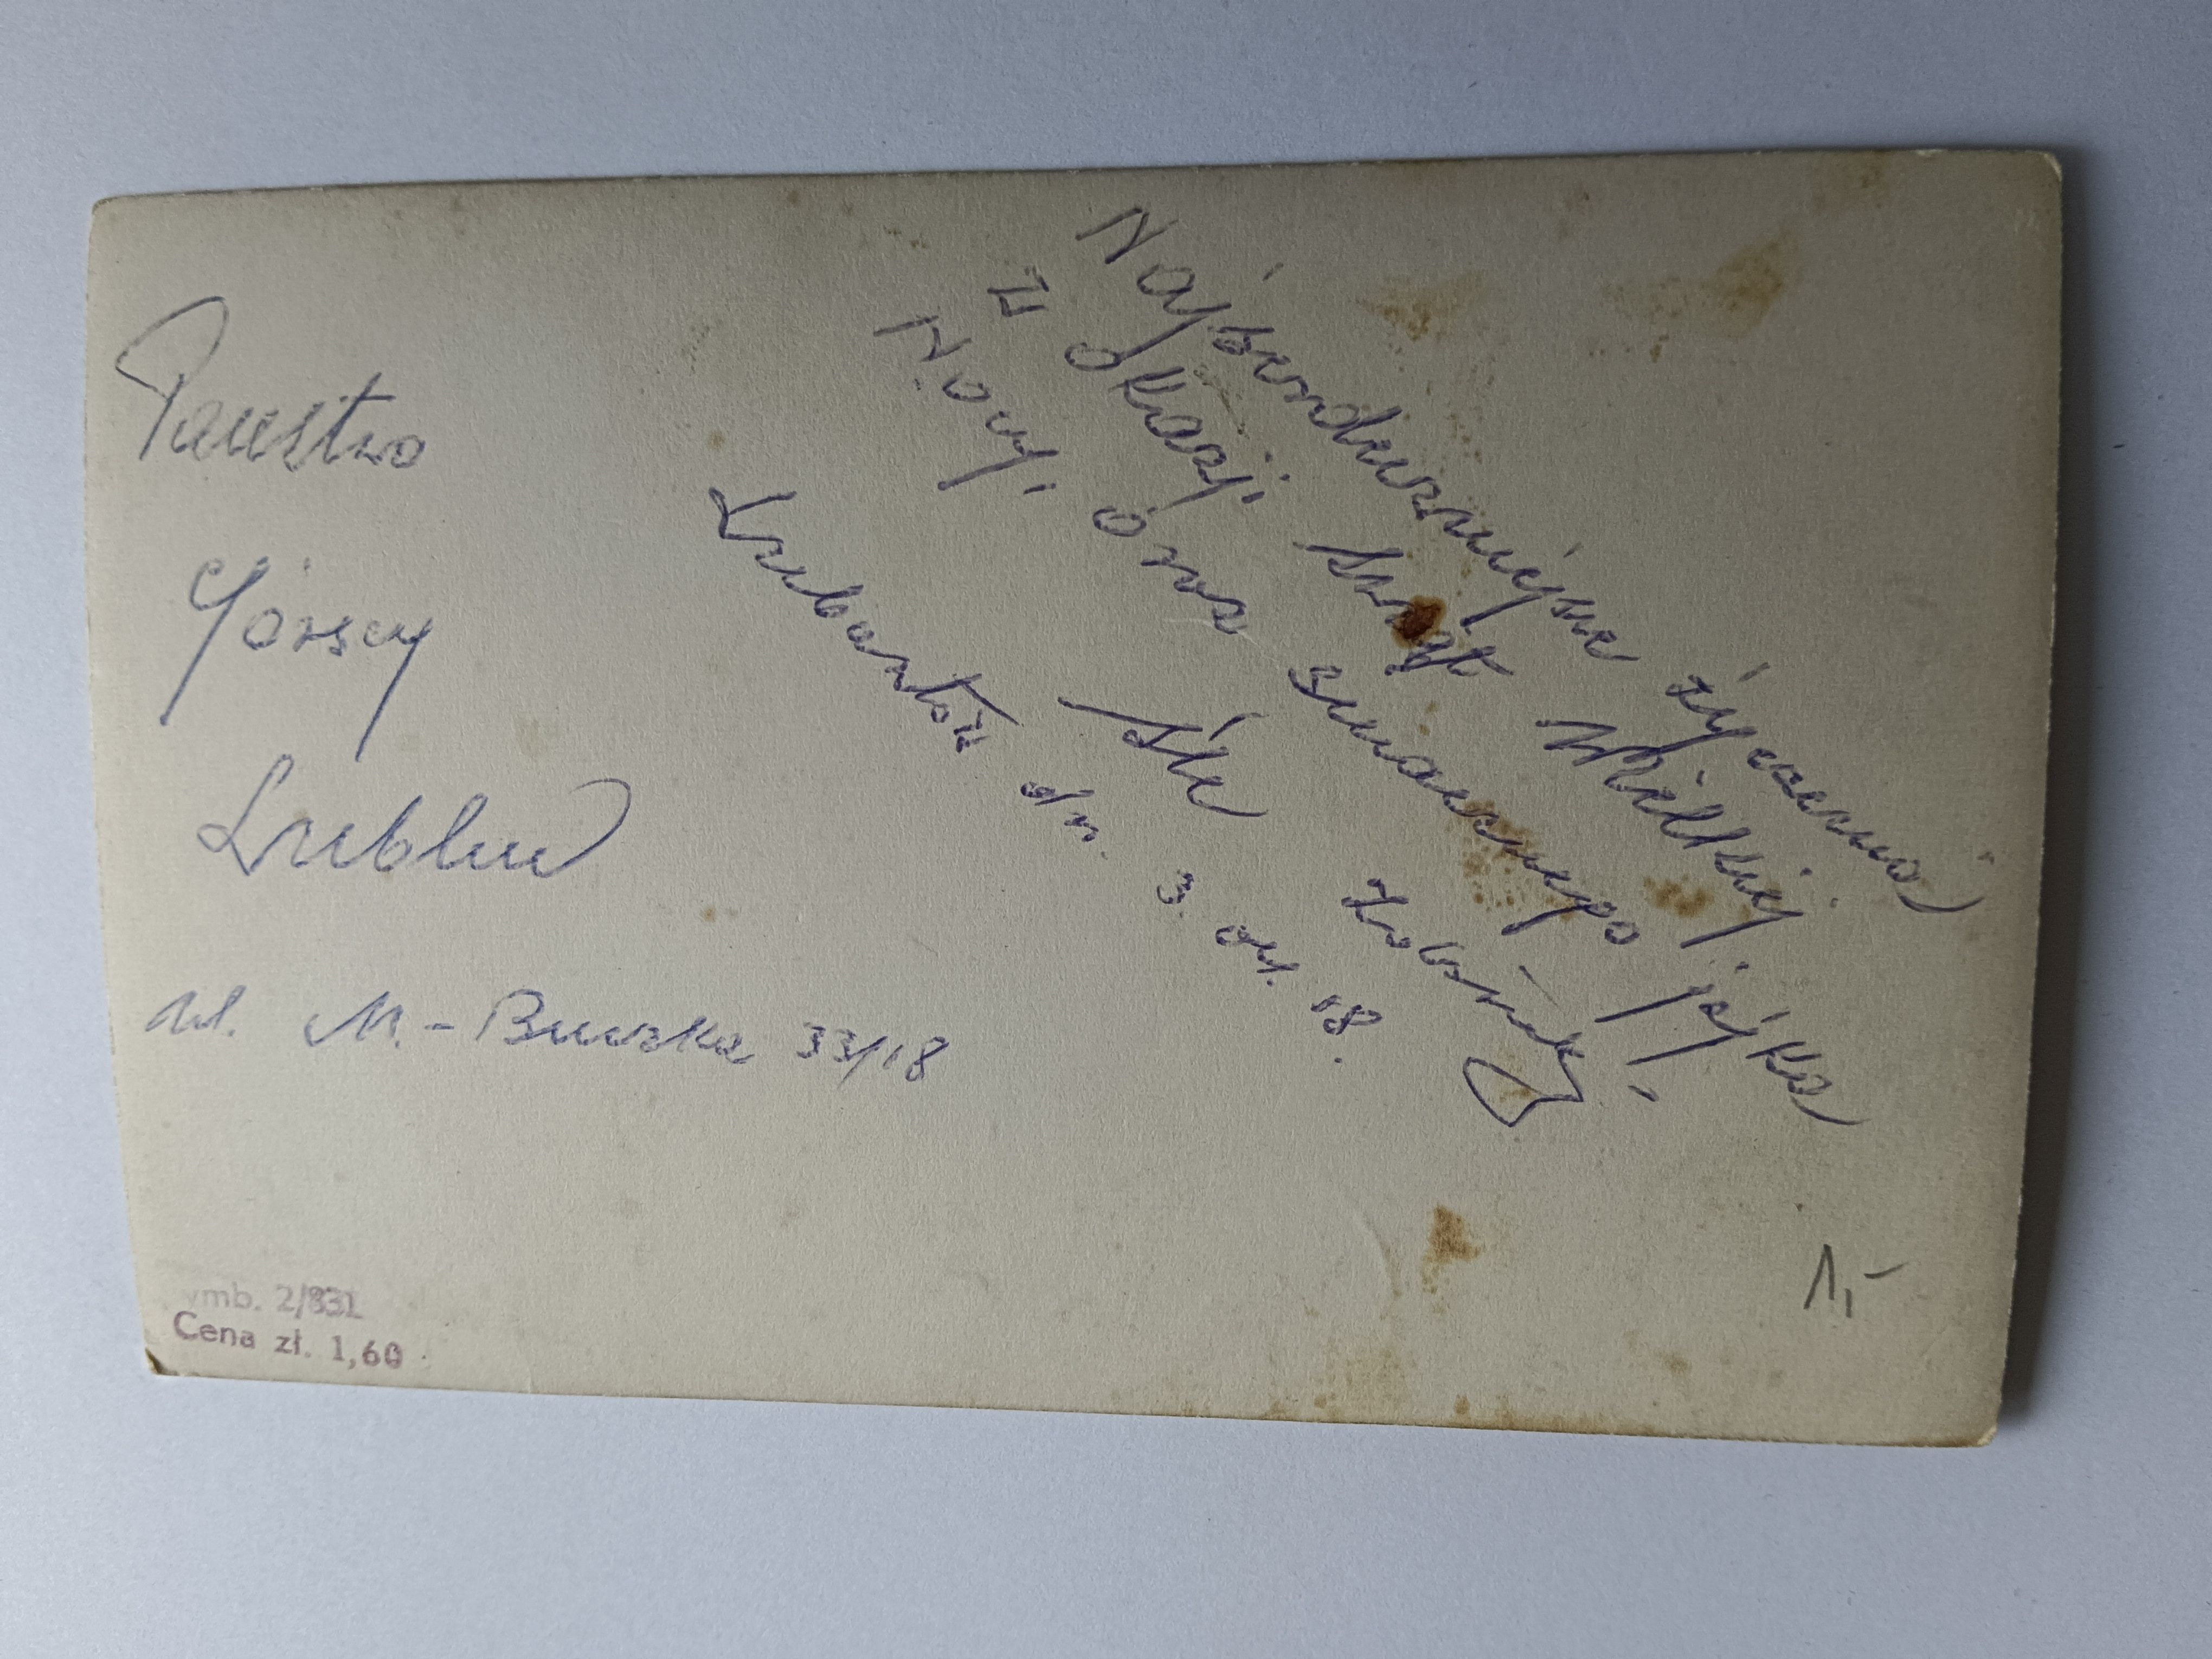 Państwo
Górscy
Lublin
ul. M. - Buczka 33/18
Najserdeczniejsze życzenia
z okazji Świąt Wielkiej
Nocy, oraz smacznego jajka
śle
Lubartów dn. 3. 18.
ymb. 2/831
Cena zł. 1,60
1,-